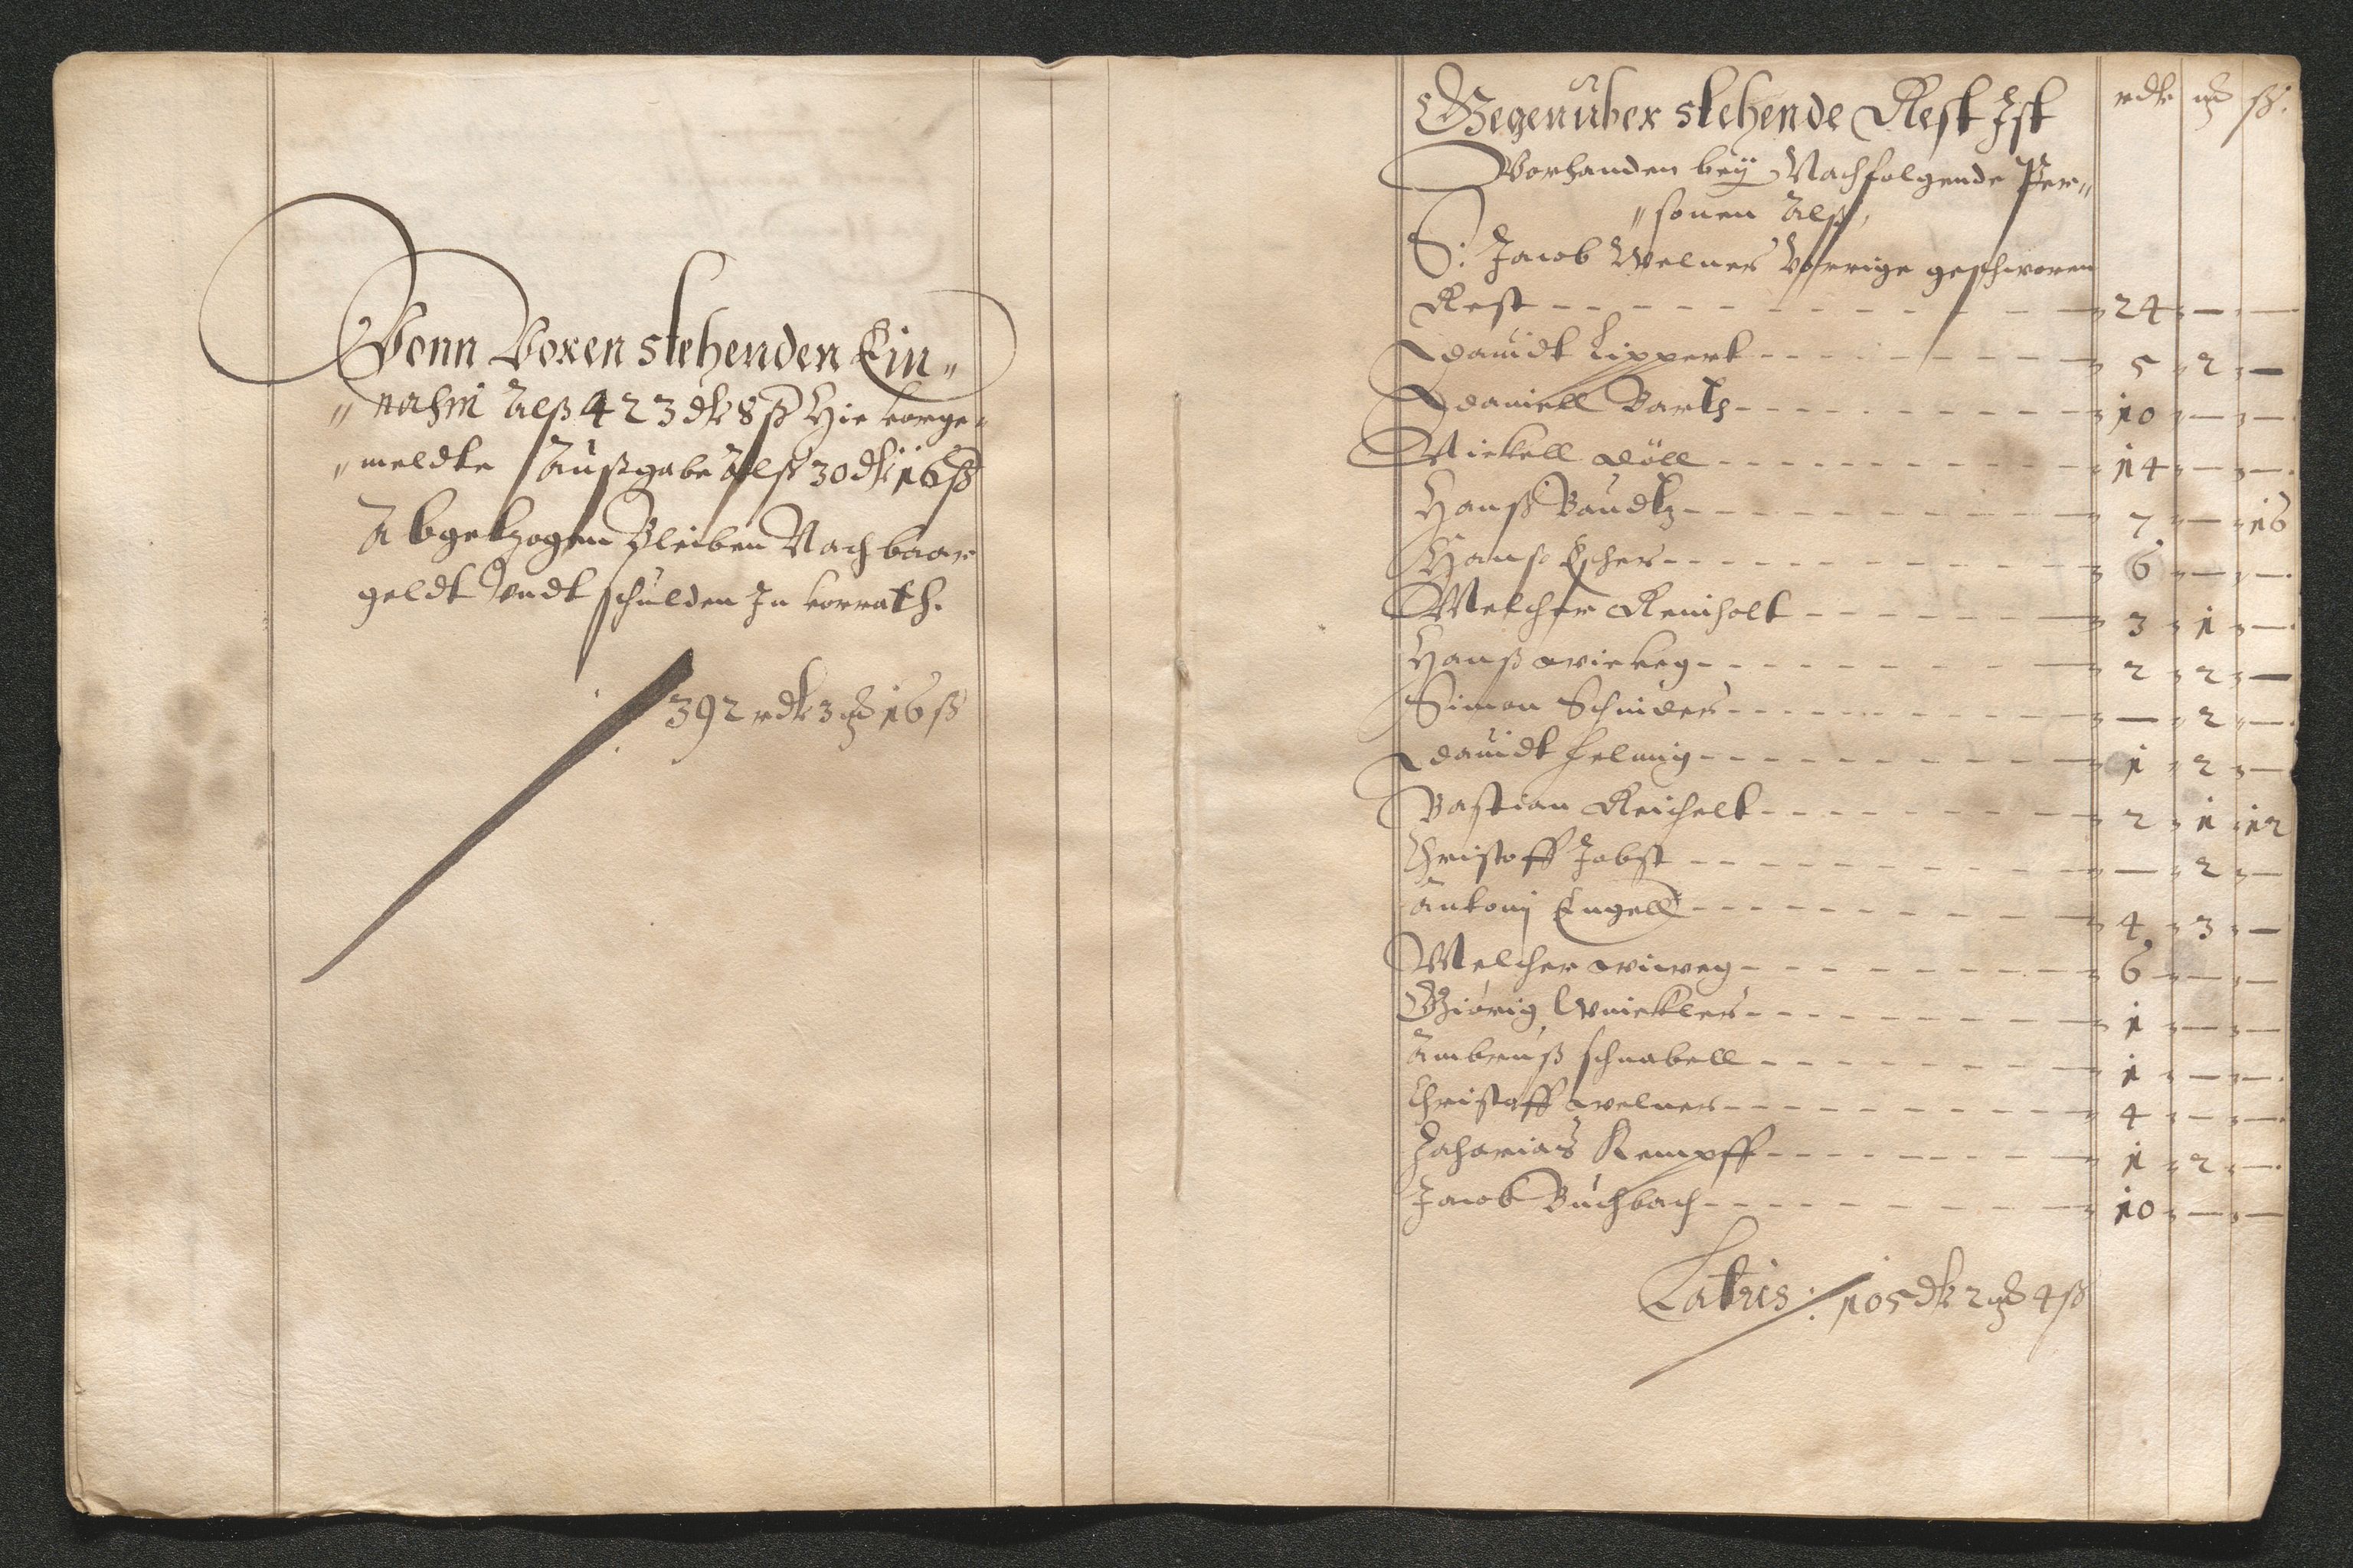 Vonn Voren stehenden Ein„
„nahm Alß 423 dlr 8 ß Hie vorge„
„meldte Außgabe Alß 30 dlr 16 ß
Abgetzogen Bleiben Nach baar
geldt Vndt schulden In vorrath.
392 rdlr 3 mk 16 ß
Gegenüber stehende Rest Ist rdlr mk ß.
Vorhanden beÿ Nachfolgende Per„
„sonen Alß,
S: Jacob Welner Vorrige geschworen
Rest 24 — —
Dauidt Lippert 5 2 —
Daniell Barth 10 — —
Nickell Döll 14 — —
Hanß Baudtz 7 — 16
Hanß Escher 6 — —
Melcher Reinholt 3 1 —
Hanß 2 2 —
Simon Schnider — 2 —
Dauidt Helmig 1 2 —
Bastian Reichelt 2 1 12
Christoff Jobst — 2 —
Antonij Engell 4 3 —
Melcher 6 — —
Giörig Winckler 1 — —
Ambruß schnabell 1 — —
Christoff Welner 4 — —
Zacharias Kempff 1 2 —
Jacob Buchbach 10 — —
Latus: 105 dlr 2 mk 4 ß